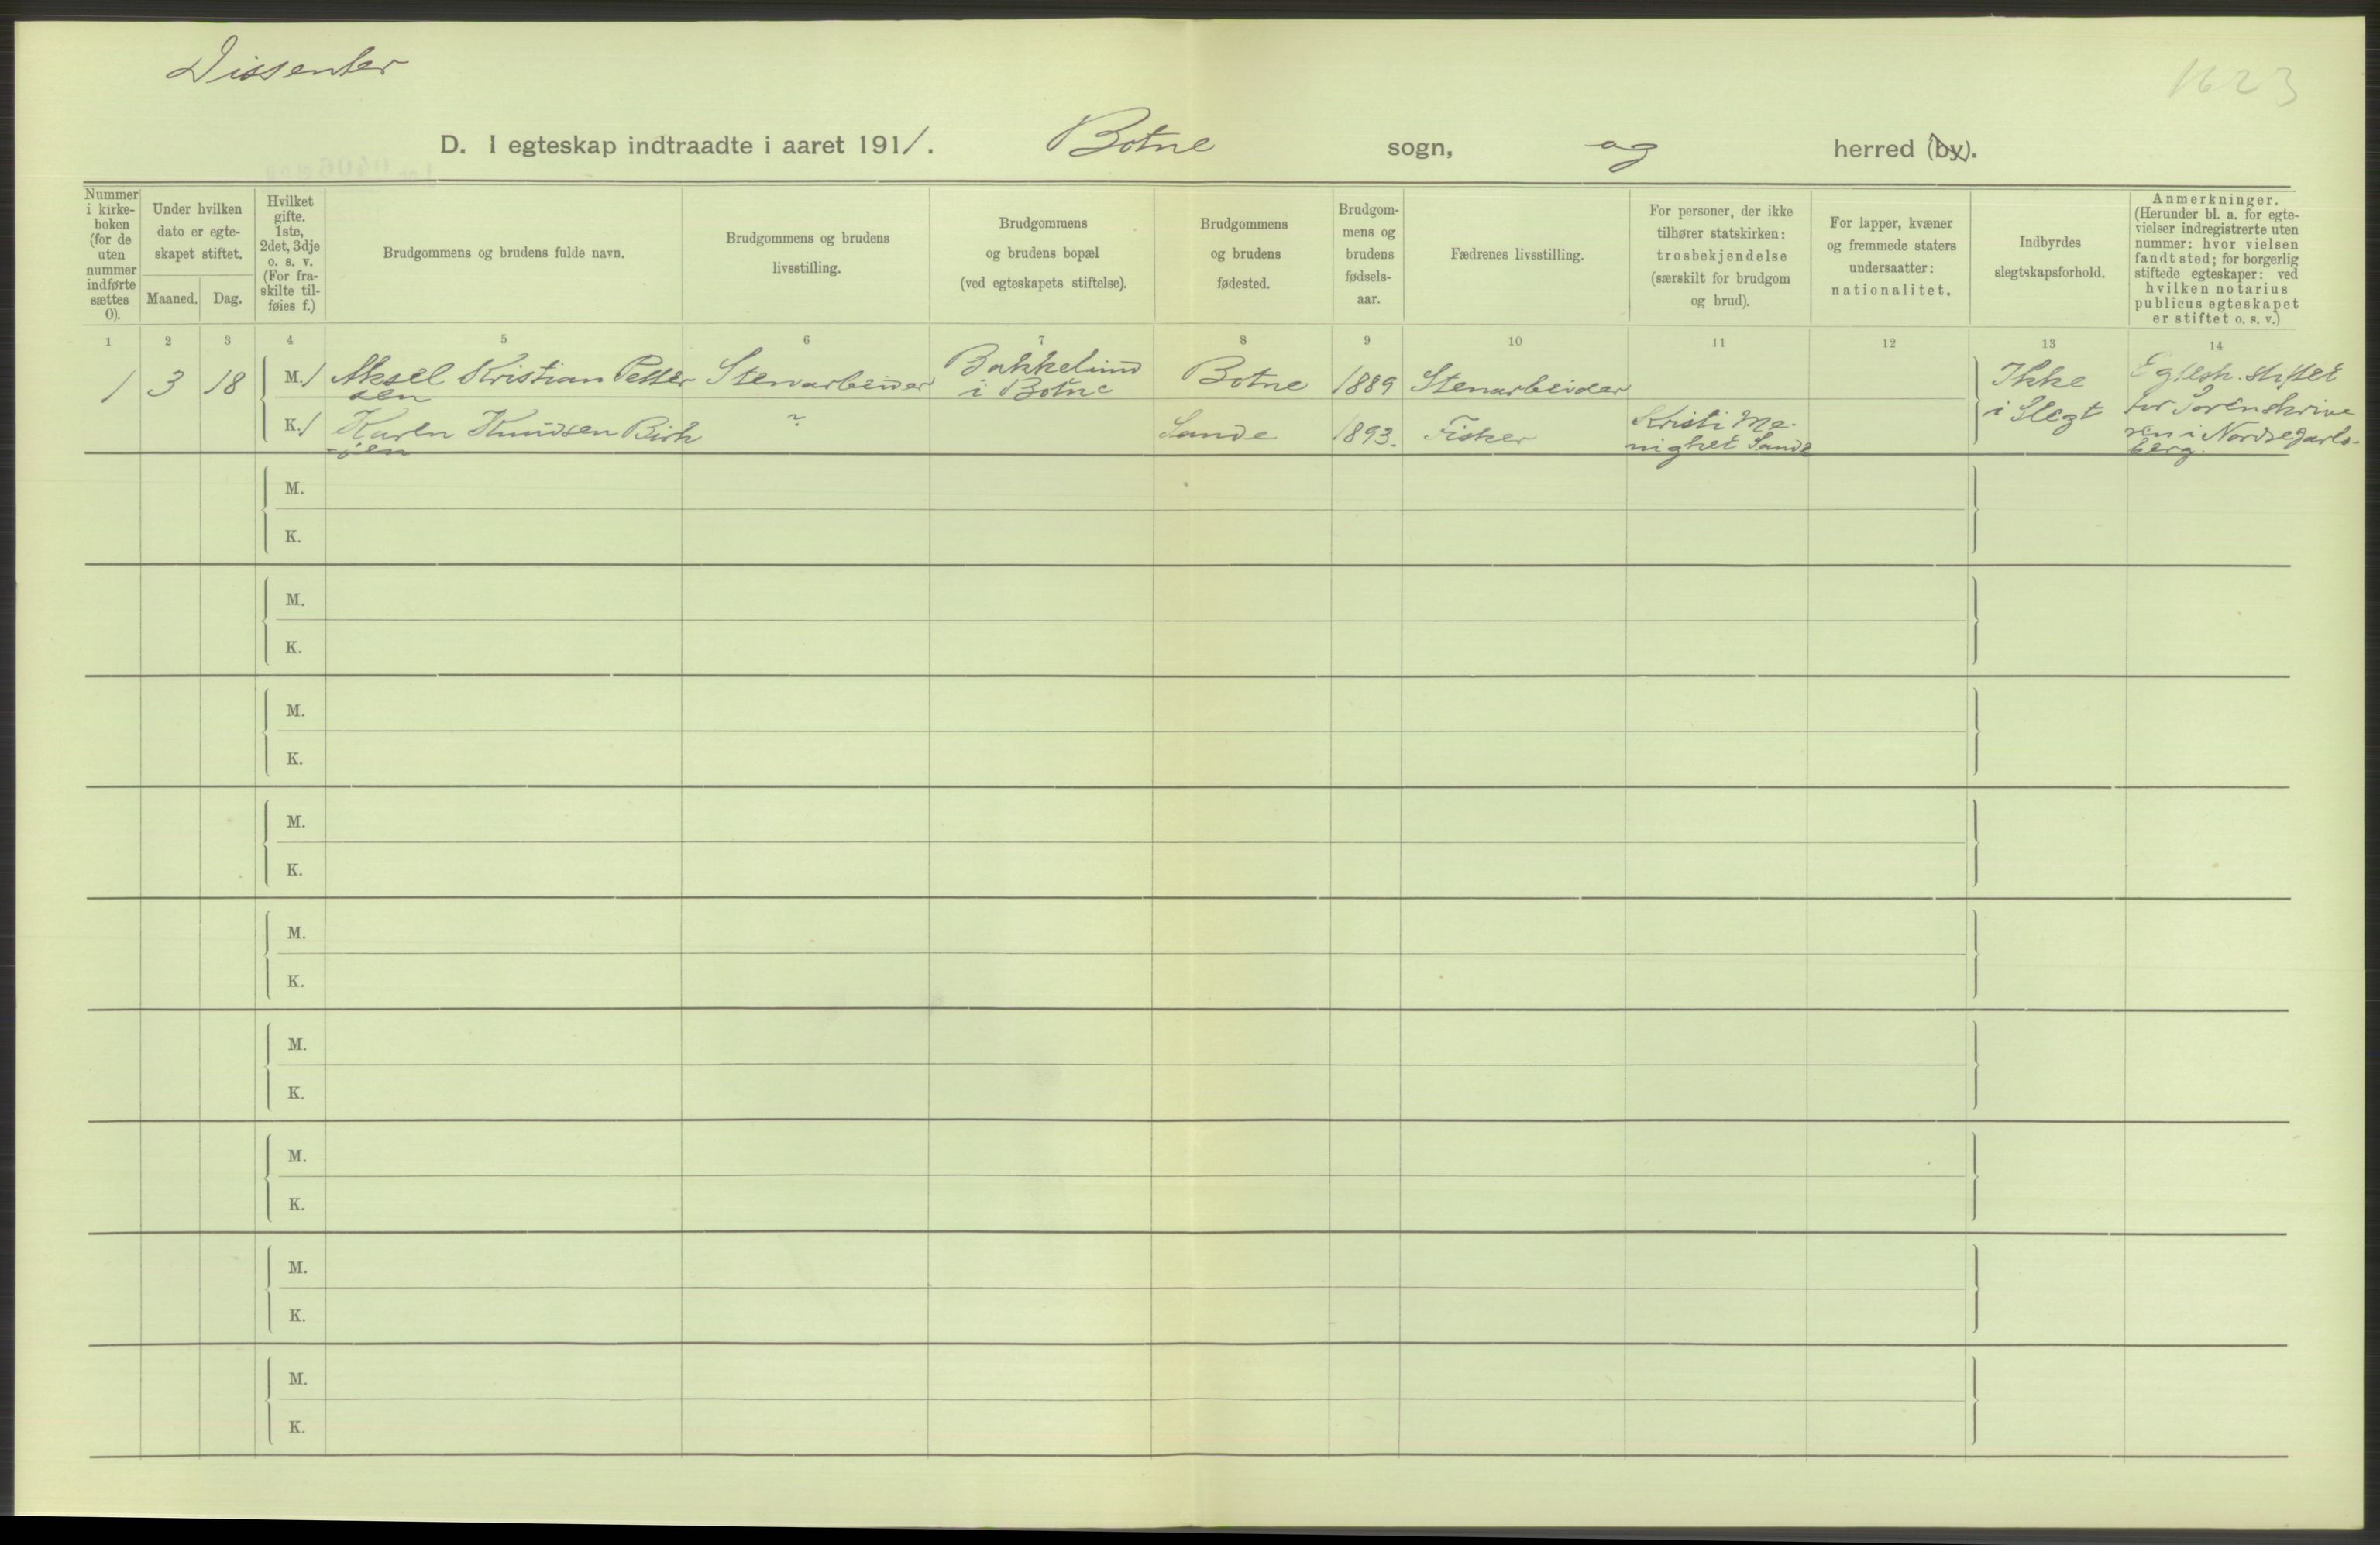 Dissenter
1623
D. I egteskap indtraadte i aaret 1911. Botne sogn, og herred (by).
Nummer i kirkeboken (for de uten nummer indførte sættes 0).
Under hvilken dato er egteskapet stiftet.
Maaned. Dag.
Hvilket gifte. 1ste, 2det, 3dje o. s. v. (For fraskilte tilføies f.)
Brudgommens og brudens fulde navn.
Brudgommens og brudens livsstilling.
Brudgommens og brudens bopæl (ved egteskapets stiftelse).
Brudgommens og brudens fødested.
Brudgommens og brudens fødselsaar.
Fædrenes livsstilling.
For personer, der ikke tilhører statskirken: trosbekjendelse (særskilt for brudgom og brud).
For lapper, kvæner og fremmede staters undersaatter: nationalitet.
Indbyrdes slegtskapsforhold.
Anmerkninger. (Herunder bl. a. for egtevielser indregistrerte uten nummer: hvor vielsen fandt sted; for borgerlig stiftede egteskaper: ved hvilken notarius publicus egteskapet er stiftet o. s. v.)
1 2 3 4 5 6 7 8 9 10 11 12 13 14
1 3 18 M. 1 Aksel Kristian Petter
sen Stenarbeider Bakkelund
i Botne Botne 1889 Stenarbeider
K. 1 Karen Knudsen Birk
-øen ? Sande 1893. Fisker Kristi Me-
nighet Sande
Ikke
i Slegt
Egtesk. stiftet
for Sorenskrive
ren i Nordre Jarls-
berg.
M.
K.
M.
K.
M.
K.
M.
K.
M.
K.
M.
K.
M.
K.
M.
K.
M.
K.